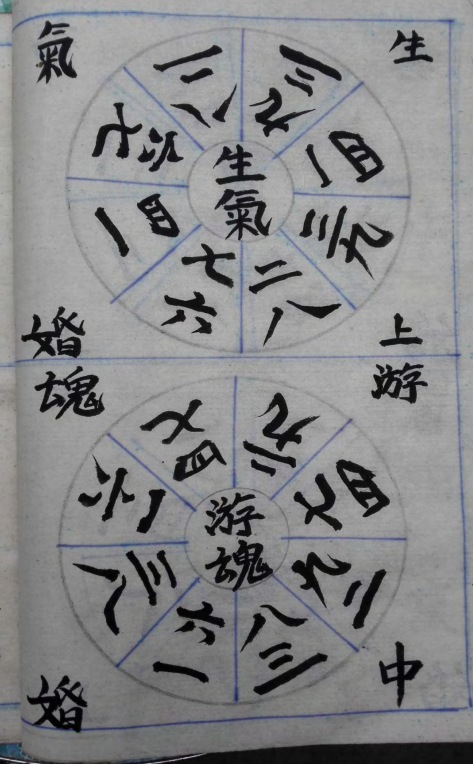 生
氣
二八
三九
四一
三九
二八
七六
四一
六七
生氣
上
婚
游
魂
七四
九二
四七
九二
八三
六一
三八
六一
游魂
中
婚